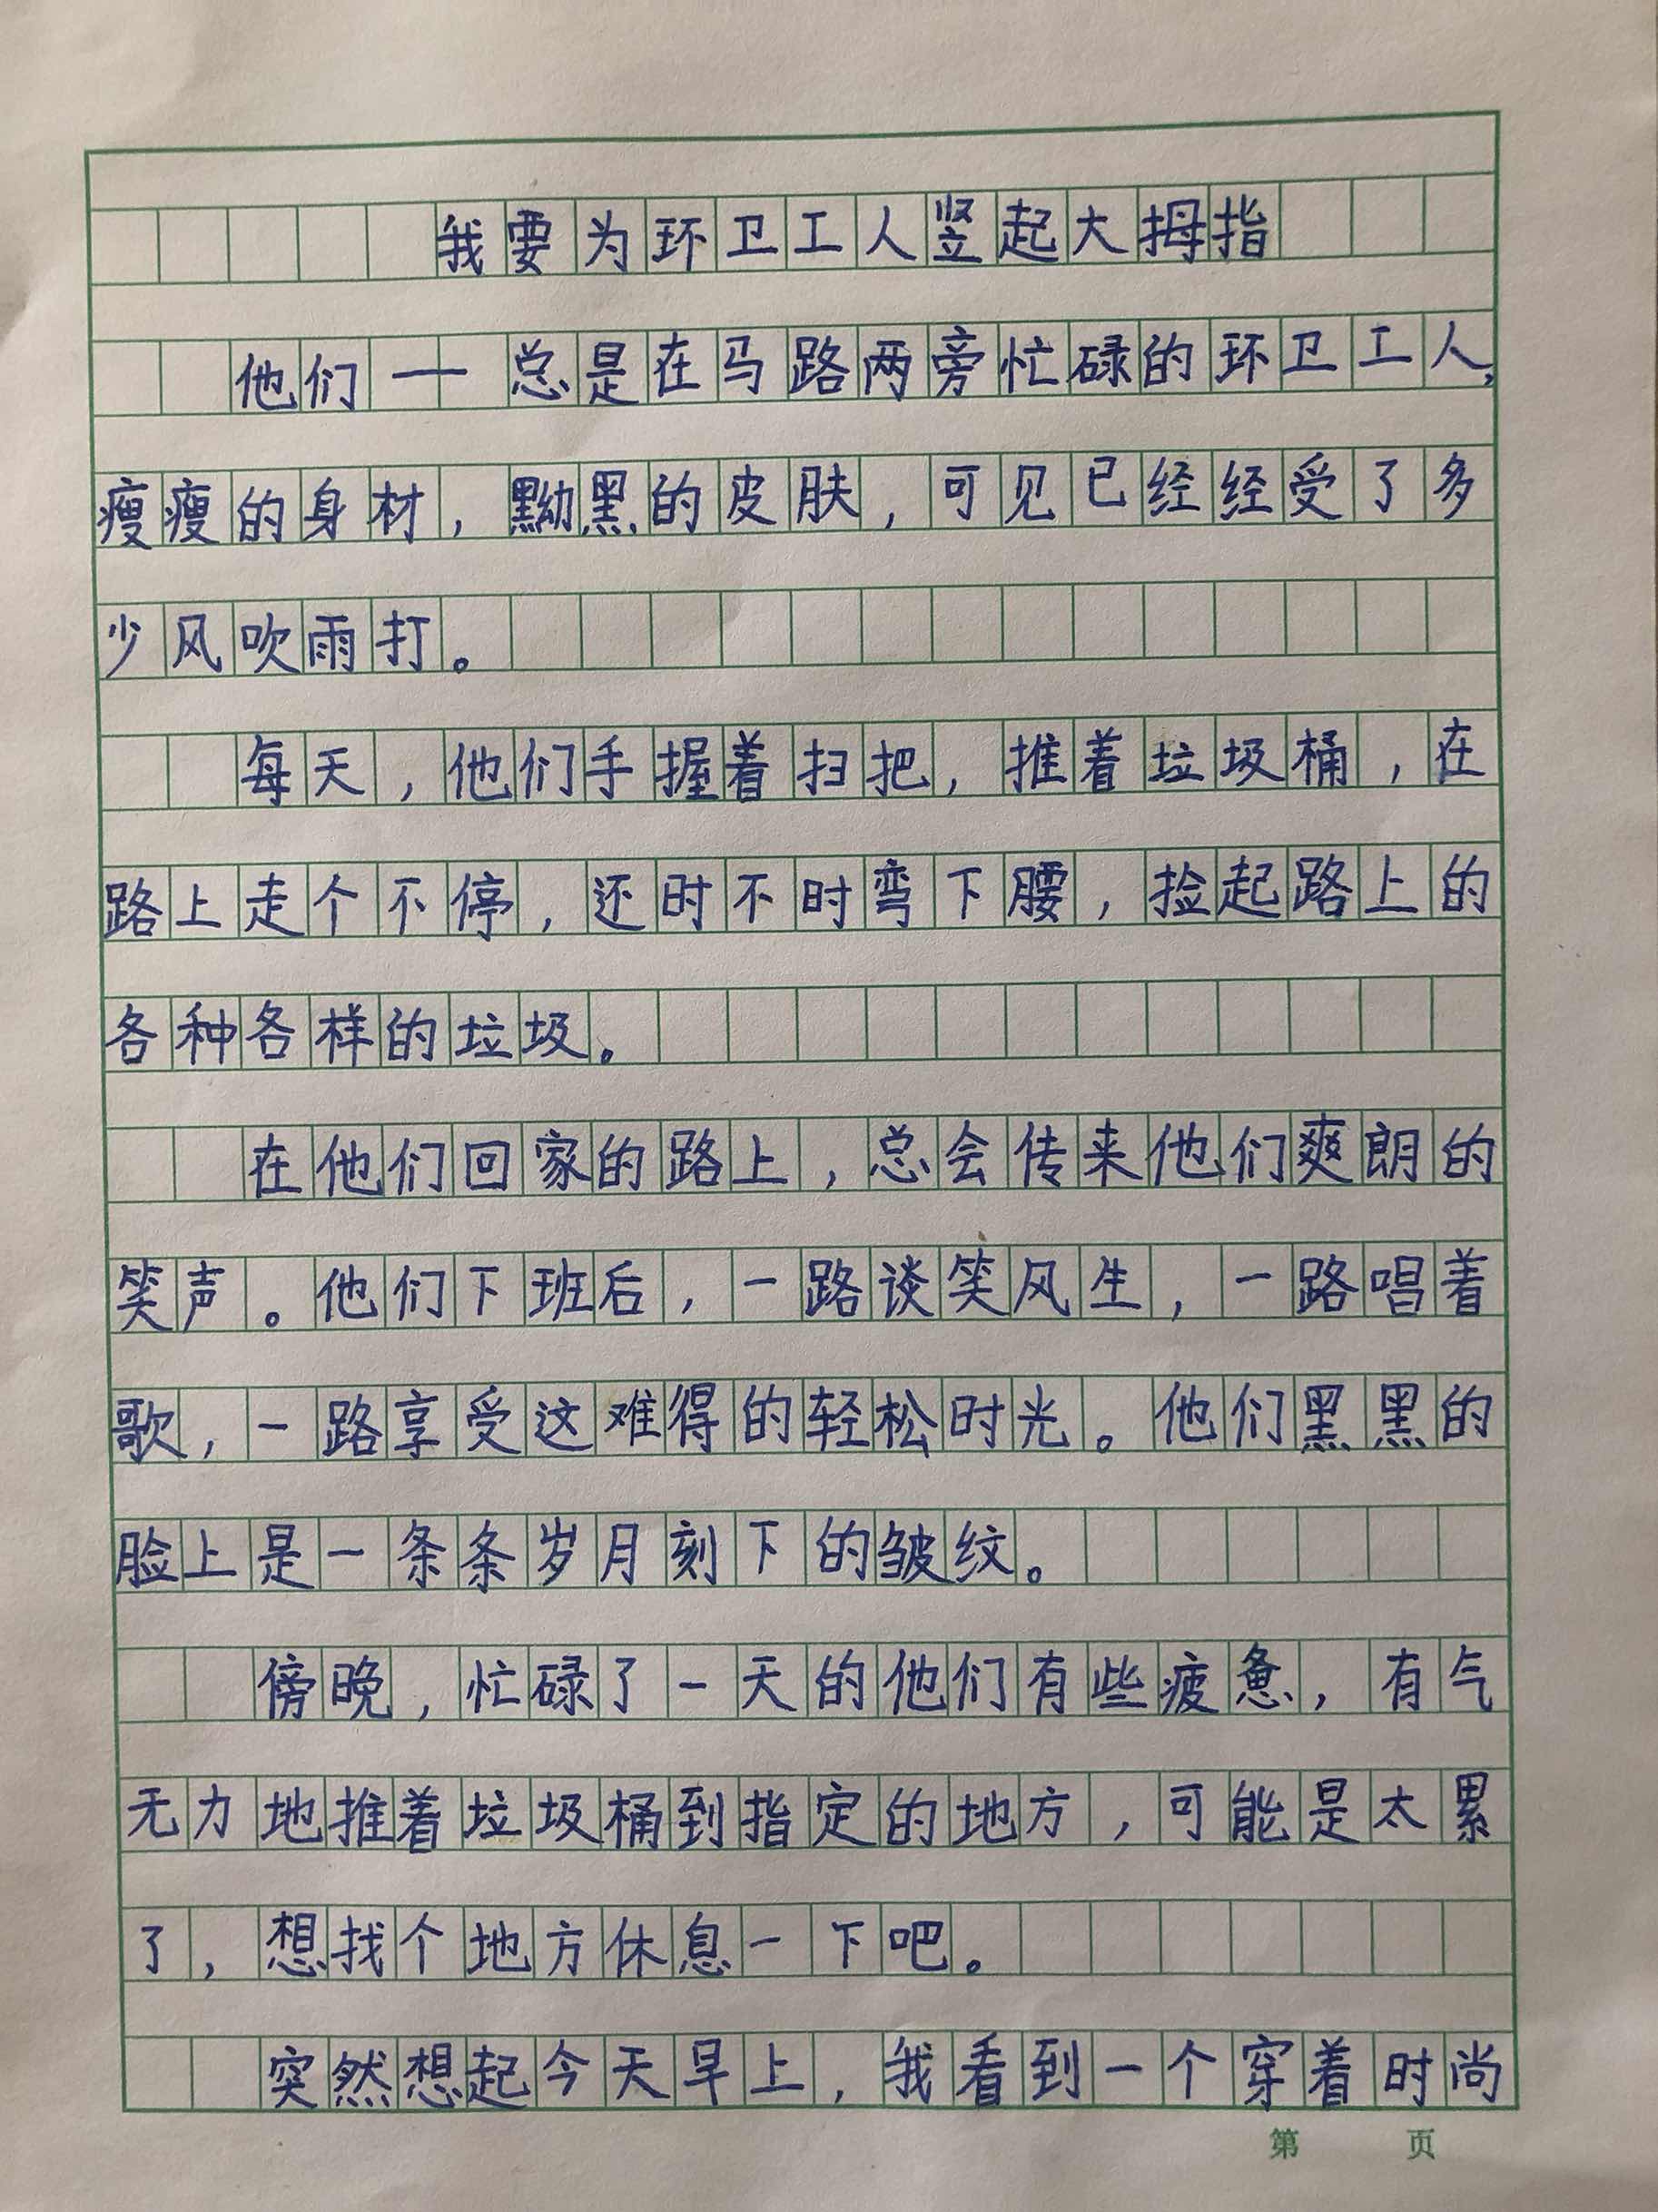 我要为环卫工人竖起大拇指
他们——总是在马路两旁忙碌的环卫工人,
瘦瘦的身材，黝黑的皮肤，可见已经经受了多
少风吹雨打。
每天，他们手握着扫把，推着垃圾桶，在
路上走个不停，还时不时弯下腰，捡起路上的
各种各样的垃圾。
在他们回家的路上，总会传来他们爽朗的
笑声。他们下班后，一路谈笑风生，一路唱着
歌，一路享受这难得的轻松时光。他们黑黑的
脸上是一条条岁月刻下的皱纹。
傍晚，忙碌了一天的他们有些疲惫，有气
无力地推着垃圾桶到指定的地方，可能是太累
了，想找个地方休息一下吧。
突然想起今天早上，我看到一个穿着时尚
第 页